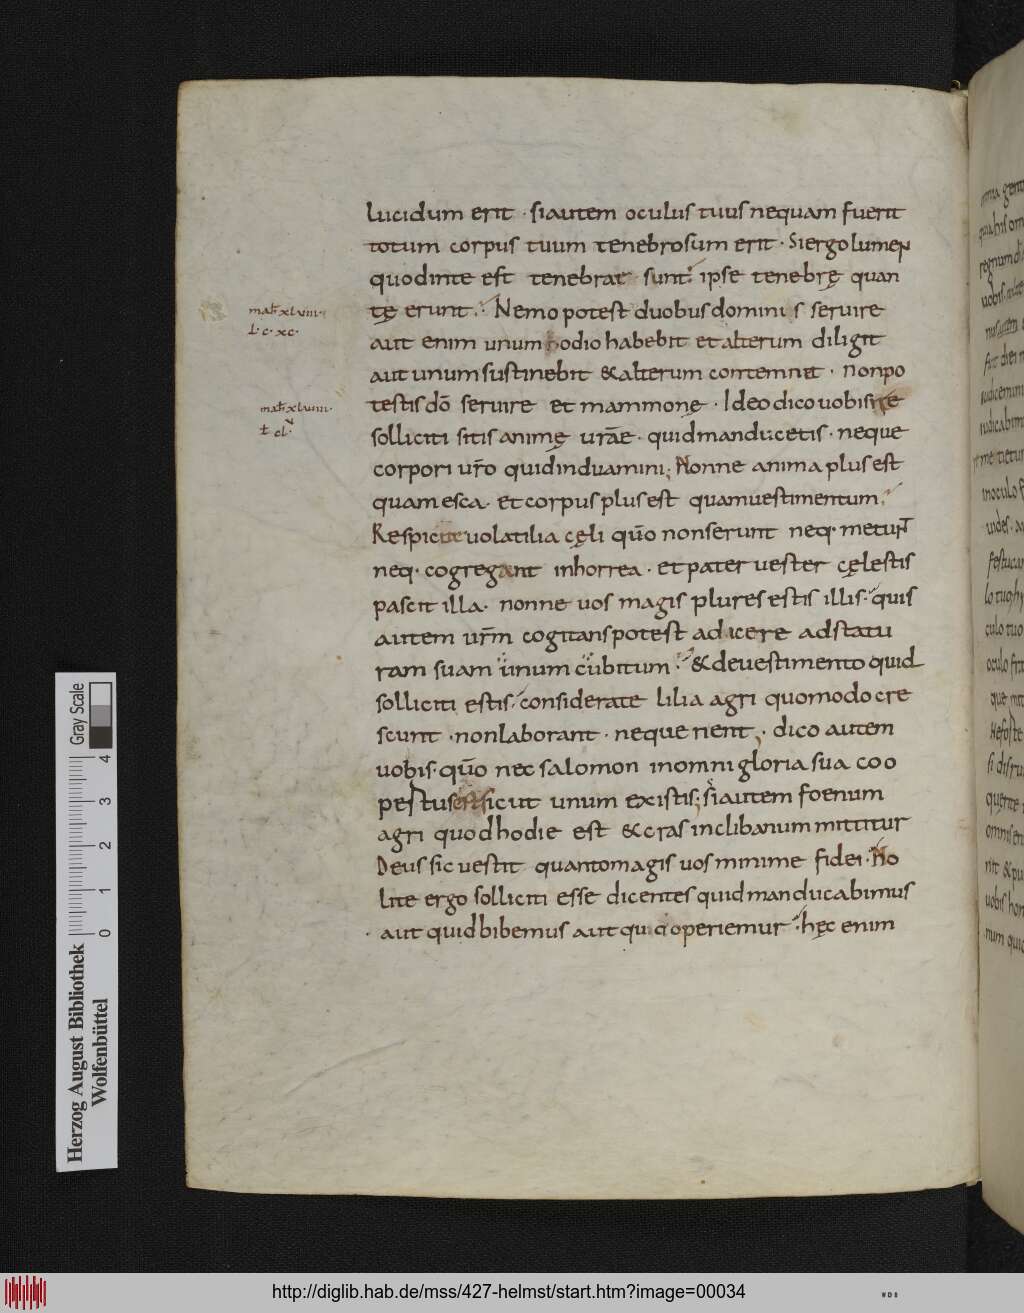 lucidum erit · siautem oculus tuus nequam fuerit
totum corpus tuum tenebrosum erit · Siergo lumen
quodinte est tenebrae sunt · ipse tenebrę quan
tę erunt · Nemo potest duobus domini s servire
aut enim unum odio habebit et alterum diligit
aut unum sustinebit & alterum contemnet · nonpo
testis dō servire et mammonę · Ideo dico uobis
solliciti sitis animę urāe · quid manducetis · neque
corpori ur̄o quid induamini; Nonne anima plus est
quam esca · et corpus plus est quam uestimentum
Respicite uolatilia cęli qūo non serunt neq· metunt
neq· cogregant inhorrea · et pater uester cęlestis
pascit illa · nonne uos magis plures estis illis · quis
autem ur̄m cogitans potest adicere ad statu
ram suam unum cubitum · & de uestimento quid
solliciti estis · considerate lilia agri quomodo cre
scunt · non laborant · neque nent · dico autem
uobis · qūo nec salomon in omni gloria sua coo
pertus est sicut unum ex istis; si autem foenum
agri quod hodie est & cras inclibanum mittitur
Deus sic uestit quanto magis uos minime fidei · No
lite ergo solliciti esse dicentes quid manducabimus
aut quid bibemus aut quo operiemur · hęc enim
mat̄ xlviii·
L· c· xc·
mat̄ xlviiii·
ł cl·
Herzog August Bibliothek
Wolfenbüttel
Gray Scale
0 1 2 3 4
http://diglib.hab.de/mss/427-helmst/start.htm?image=00034